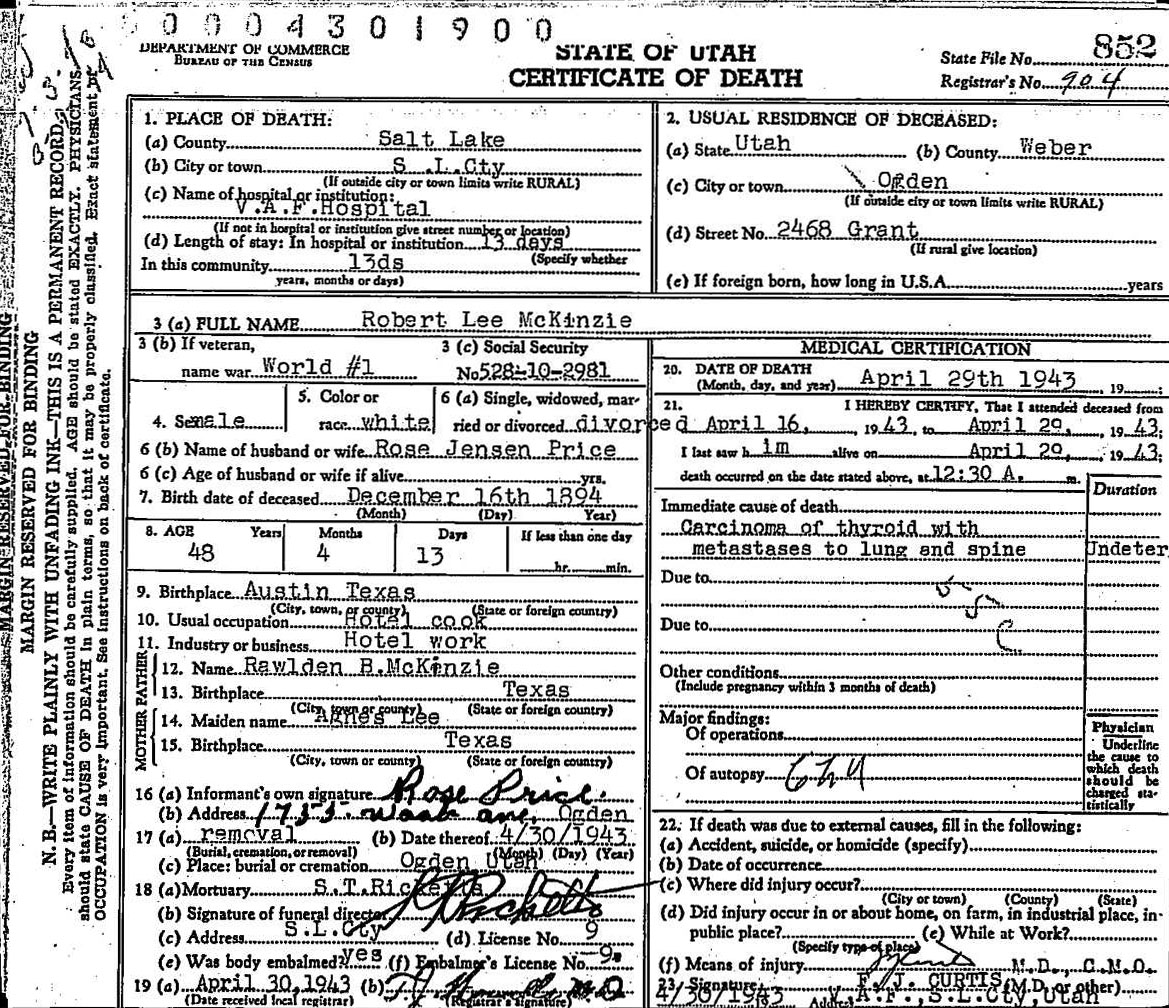 0 0 0 4 3 0 1 9 0 0
DEPARTMENT OF COMMERCE
BUREAU OF THE CENSUS
STATE OF UTAH
CERTIFICATE OF DEATH
State File No. 852
Registrar's No. 904
MARGIN RESERVED FOR BINDING
MARGIN RESERVED FOR BINDING
N. B.—WRITE PLAINLY WITH UNFADING INK—THIS IS A PERMANENT RECORD.
Every item of information should be carefully supplied. AGE should be stated EXACTLY. PHYSICIANS
should state CAUSE OF DEATH in plain terms, so that it may be properly classified. Exact statement of
OCCUPATION is very important. See instructions on back of certificate.
1. PLACE OF DEATH:
(a) County Salt Lake
(b) City or town S .L.Cty
(If outside city or town limits write RURAL)
(c) Name of hospital or institution:
V.A.F.Hospital
(If not in hospital or institution give street number or location)
(d) Length of stay: In hospital or institution 13 days
(Specify whether
In this community 13ds
years, months or days)
2. USUAL RESIDENCE OF DECEASED:
(a) State Utah (b) County Weber
(c) City or town Ogden
(If outside city or town limits write RURAL)
(d) Street No. 2468 Grant
(If rural give location)
(e) If foreign born, how long in U.S.A. years
3 (a) FULL NAME Robert Lee McKinzie
3 (b) If veteran, name war World #1
3 (c) Social Security No. 528-10-2981
4. Sex male
5. Color or race white
6 (a) Single, widowed, married or divorced divorced
6 (b) Name of husband or wife Rose Jensen Price
6 (c) Age of husband or wife if alive yrs.
7. Birth date of deceased December 16th 1894
(Month) (Day) Year)
8. AGE Years Months Days If less than one day
48 4 13 hr. min.
9. Birthplace Austin Texas
(City, town, or county) (State or foreign country)
10. Usual occupation Hotel cook
11. Industry or business Hotel work
FATHER
12. Name Rawlden B.McKinzie
13. Birthplace Texas
(City, town or county) (State or foreign country)
MOTHER
14. Maiden name Agnes Lee
15. Birthplace Texas
(City, town or county) (State or foreign country)
16 (a) Informant's own signature Rose Price.
(b) Address 1735 ave, Ogden
17 (a) removal (b) Date thereof 4/30/1943
(Burial, cremation, or removal) (Month) (Day) (Year)
(c) Place: burial or cremation Ogden Utah
18 (a) Mortuary S.T.Ricketts
(b) Signature of funeral director Ricketts
(c) Address S.L.Cty (d) License No. 9
(e) Was body embalmed? yes (f) Embalmer's License No. 9.
19 (a) April 30,1943 (b) M D
(Date received local registrar) (Registrar's signature)
MEDICAL CERTIFICATION
20. DATE OF DEATH
(Month, day, and year) April 29th 1943 , 19
21. I HEREBY CERTIFY, That I attended deceased from
April 16, 1943, to April 29, 1943;
I last saw h im alive on April 29, 1943;
death occurred on the date stated above, at 12:30 A. m.
Duration
Immediate cause of death
Carcinoma of thyroid with
metastases to lung and spine Undeter
Due to
55
Due to
C
Other conditions
(Include pregnancy within 3 months of death)
Major findings:
Of operations
Of autopsy
Physician
Underline
the cause to
which death
should be
charged sta-
tistically
22. If death was due to external causes, fill in the following:
(a) Accident, suicide, or homicide (specify)
(b) Date of occurrence
(c) Where did injury occur?
(City or town) (County) (State)
(d) Did injury occur in or about home, on farm, in industrial place, in-
public place? (e) While at Work?
(Specify type of place)
(f) Means of injury
23. Signature F. J. CURTIS M.D., C.M.O.
(M.D. or other)
4/30/1943 Address V.A.F.,S.L.Cty,Utah